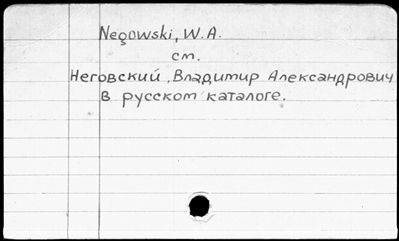 Negowski, W.A.
см.
Неговский, Владимир Александрович
в русском каталоге.